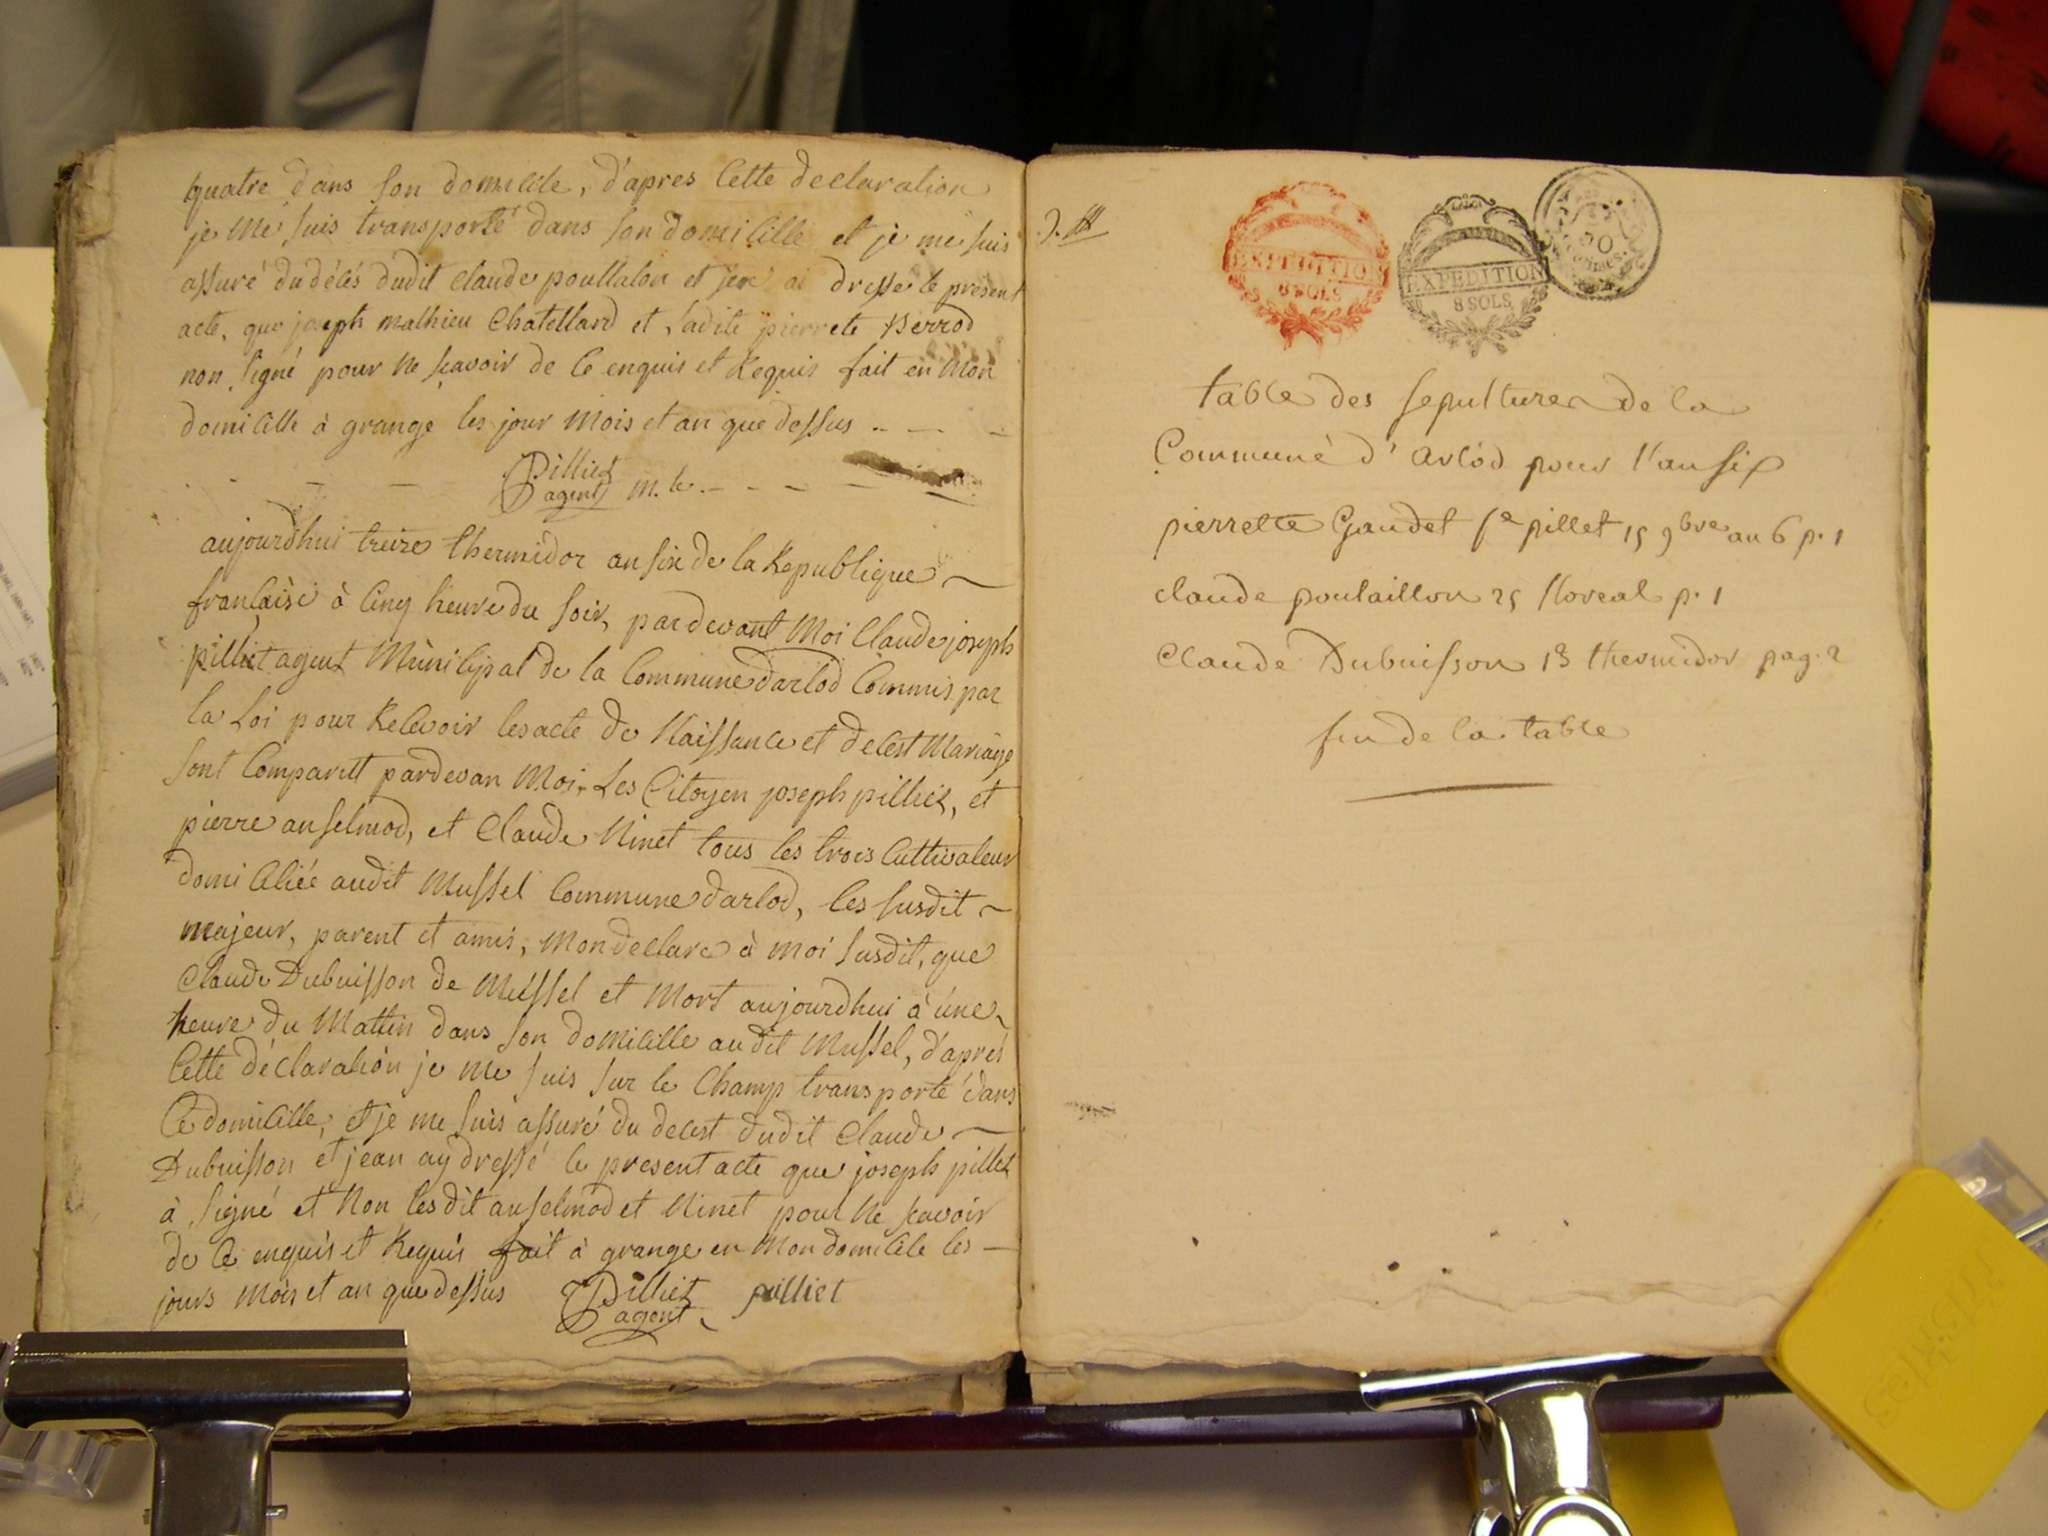 quatre dans son domicile, d'apres Cette declaration
je me suis transporté dans son domicille et je me suis
assuré du déces dudit claude poultalon et jen ai dresse le present
acte, que joseph mathieu Chatellard et ladite pierrete perrod
non signé pour ne scavoir de Ce enquis et Requis fait en Mon
domicille à grange les jour Mois et an que dessus
Pilliet
agent m. le.
aujourdhui treize thermidor an six de la Republique
francaise à Cinq heure du soir, pardevant Moi Claude joseph
pilliet agent Municipal de la Commune darlod Commis par
la Loi pour Recevoir les acte de Naissance et decest Mariage
sont Comparut pardevan Moi. Les Citoyen joseph pilliet, et
pierre anselmod, et Claude Ninet tous les trois Cultivateur
domicilieé audit Mussel Commune darlod, les susdit
majeur, parent et amis, Mon declare à moi susdit, que
Claude Dubuisson de Mussel et Mort aujourdhui à une
heure du Mattin dans son domicille audit Mussel, d'aprés
Cette déclaration je me suis sur le Champ transporté dans
Ce domicille, et je me suis assuré du decest dudit Claude
Dubuisson et jean ay dressé le present acte que joseph pilliet
à signé et Non lesdit anselmod et Ninet pour Ne scavoir
de Ce enquis et Requis fait à grange en Mon domicile les
jours Mois et an que dessus Pilliet pilliet
agent
EXPEDITION
8 SOLS
EXPEDITION
8 SOLS
50
table des sepultures de la
Commune d'arlod pour l'an six
pierrette Gaudet fe pillet 15 9bre an 6 p. 1
claude poutaillon 25 floreal p. 1
Claude Dubuisson 13 thermidor pag. 2
fin de la table